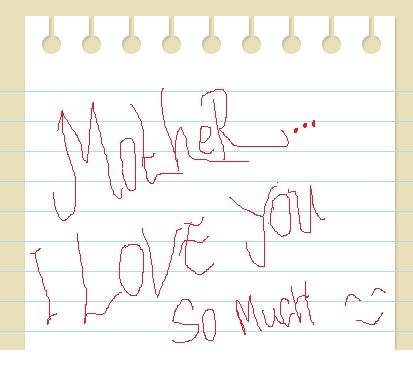 Mother...
I LOVE YOU
SO MUCH